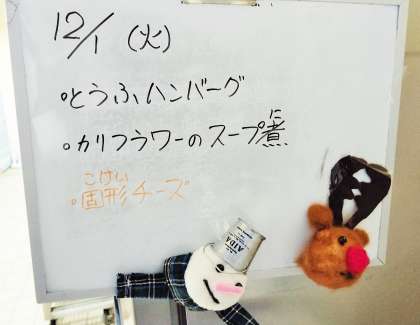 12/1 (火)
・とうふハンバーグ
・カリフラワーのスープ煮
に
・固形チーズ
こけい
AIDA